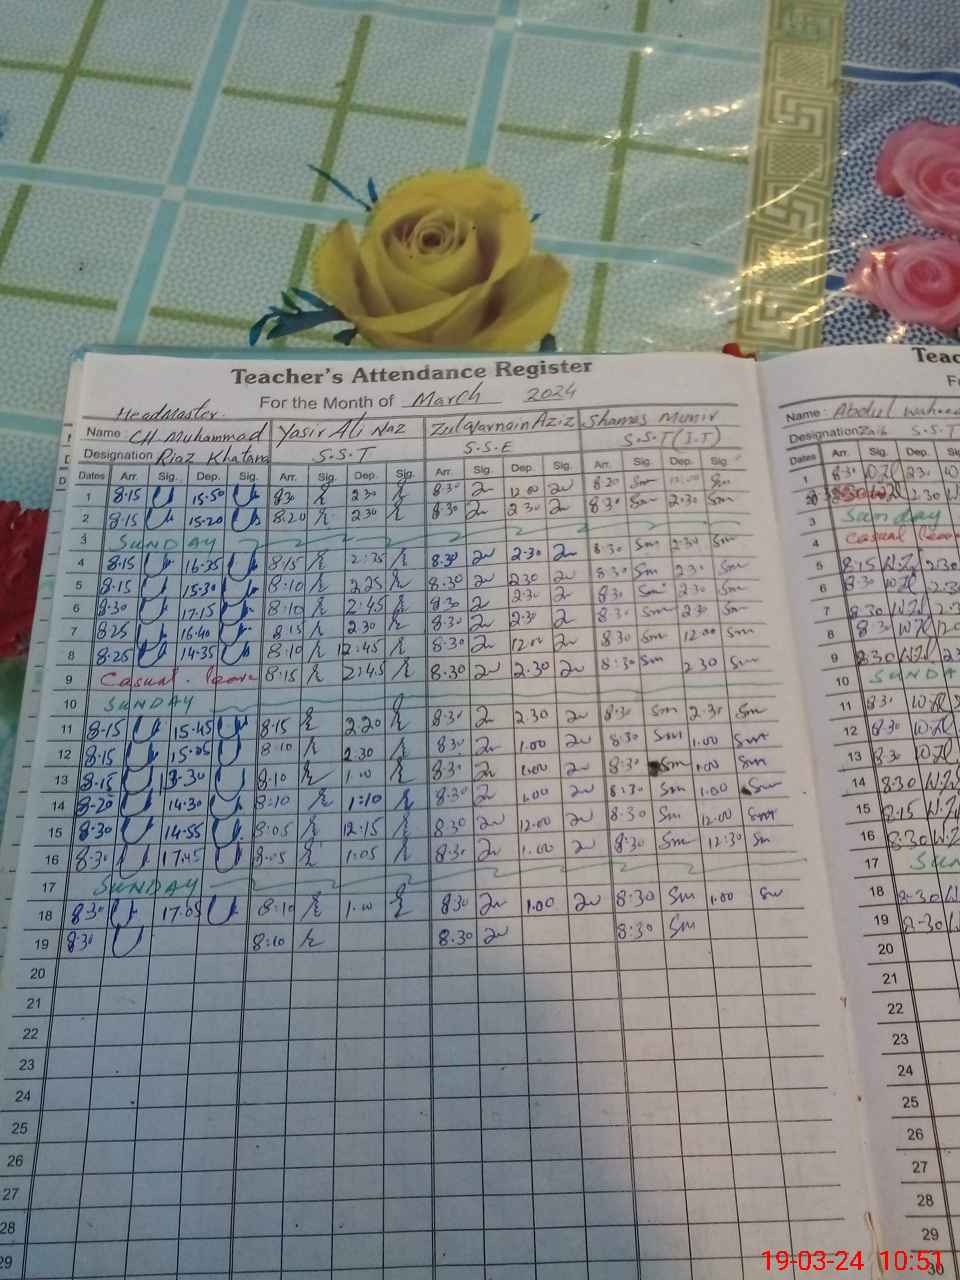 Teacher's Attendance Register
For the Month of March 2024
HeadMaster.
Name : CH Muhammad Yasir Ali Naz Zulqarnain Aziz Shamas Munir
Designation Riaz Khatana S.S.T S.S.E S.S.T (I.T)
Dates Arr. Sig. Dep. Sig. Arr. Sig. Dep. Sig. Arr. Sig. Dep. Sig. Arr. Sig. Dep. Sig.
1 8.15 15.50 830 230 8.30 12.00 8.20 Sm 12.00 Sm
2 8.15 15.20 8.20 230 8.30 2.30 8.30 Sm 2.30 Sm
3 SUNDAY
4 8.15 16.35 8:15 8.30 2.30 8.30 Sm 2.30 Sm
5 8.15 15.30 8:10 2.25 8.30 2.30 8.30 Sm 2.30 Sm
6 8.30 17.15 8:10 2:45 8.30 2.30 8.30 Sm 2.30 Sm
7 8.25 16.40 8:15 2.30 8.30 2.30 8.30 Sm 2.30 Sm
8 8.25 14.35 8:10 12:45 8.30 12.00 8.30 Sm 12.00 Sm
9 Casual leave 8:15 2:45 8.30 2.30 8:30 Sm 2.30 Sm
10 SUNDAY
11 8.15 15.45 8:15 2.20 8.30 2.30 8.30 Sm 2.30 Sm
12 8.15 15.05 8:10 2:30 8.30 1.00 8.30 Sm 1.00 Sm
13 8.15 13.30 8:10 1.00 8.30 1.00 8.30 Sm 1.00 Sm
14 8.20 14.30 8:10 1:10 8.30 1.00 8.30 Sm 1.00 Sm
15 8.30 14.55 8:05 12:15 8.30 12.00 8.30 Sm 12.00 Sm
16 8.30 17.45 8.05 1.05 8.30 1.00 8:30 Sm 12:30 Sm
17 SUNDAY
18 8.30 17.05 8:10 1.00 8.30 1.00 8:30 Sm 1.00 Sm
19 8.30 8:10 8.30 8:30 Sm
20
21
22
23
24
25
26
27
28
29
Teac
Name : Abdul
Designation S.S.T
Dates Arr. Sig. Dep.
1 8.30 230
2 2.30
3 Sunday
4 Casual leave
5 8.15 2.30
6 8.30 2.30
7 8.30
8 8.30
9 8.30
10 SUNDA
11 8.30
12 8.30
13 8.30
14 8.30
15 8.15
16 8.30
17 SUN
18 8.30
19 8.30
20
21
22
23
24
25
26
27
28
29
30
19-03-24 10:51